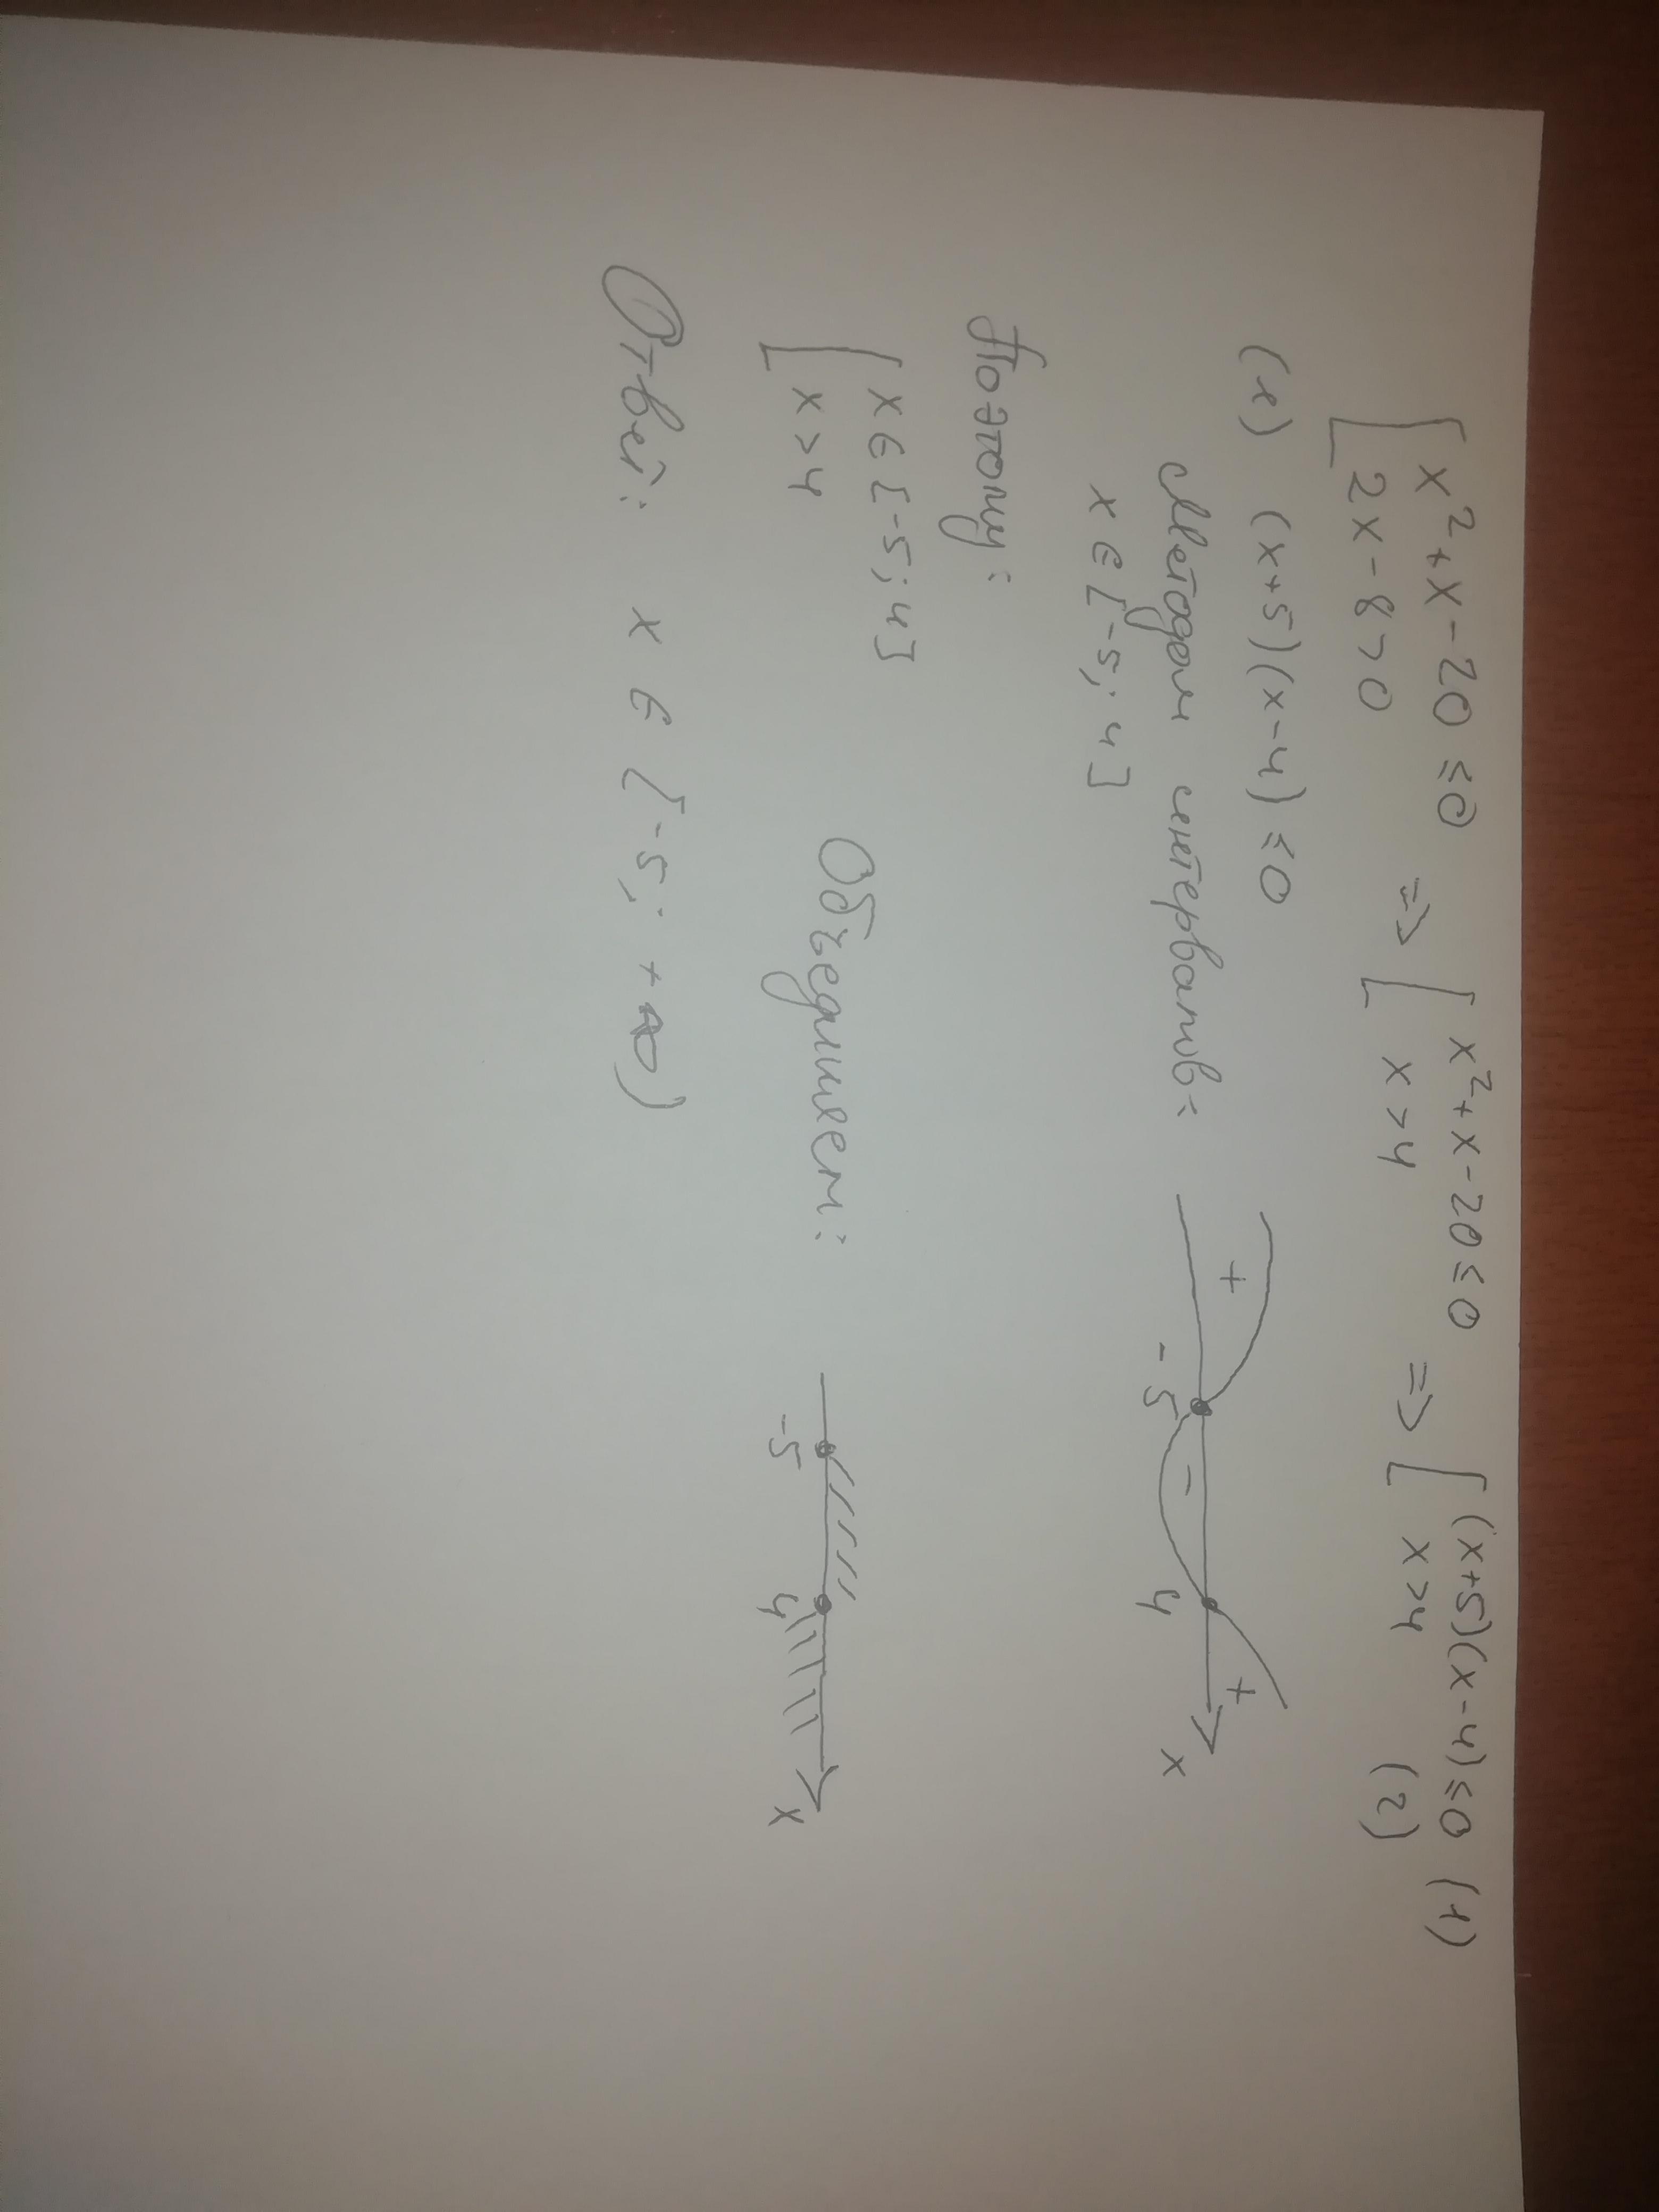 [ x² + x - 20 ≤ 0 => [ x² + x - 20 ≤ 0 => [ (x+5)(x-4) ≤ 0 (1)
[ 2x - 8 > 0 [ x > 4 [ x > 4 (2)
(1) (x+5)(x-4) ≤ 0
Методом интервалов: + -5 - 4 + x
x ∈ [-5; 4]
Поэтому:
[ x ∈ [-5; 4]
[ x > 4 Объединяем: -5 4 x
Ответ: x ∈ [-5; +∞)